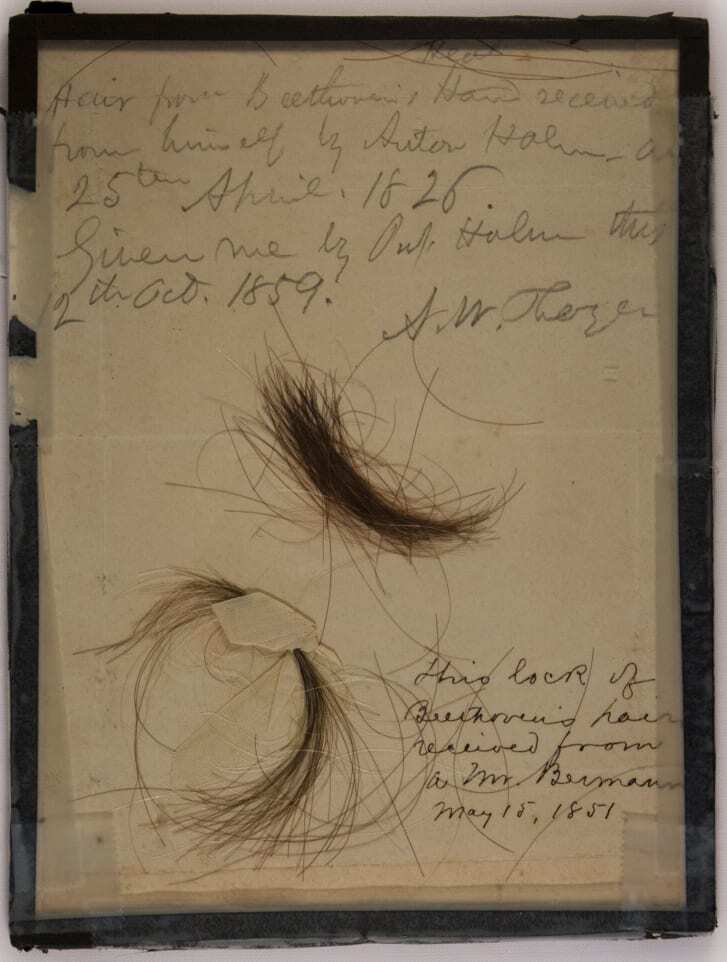 Head
Hair from Beethoven's Hand received
from himself by Anton Halm on
25ten April. 1826
Given me by Prof. Halm this
12th Oct. 1859.
A. W. Thayer
This lock of
Beethoven's hair
received from
a Mr. Bermann
May 15, 1851